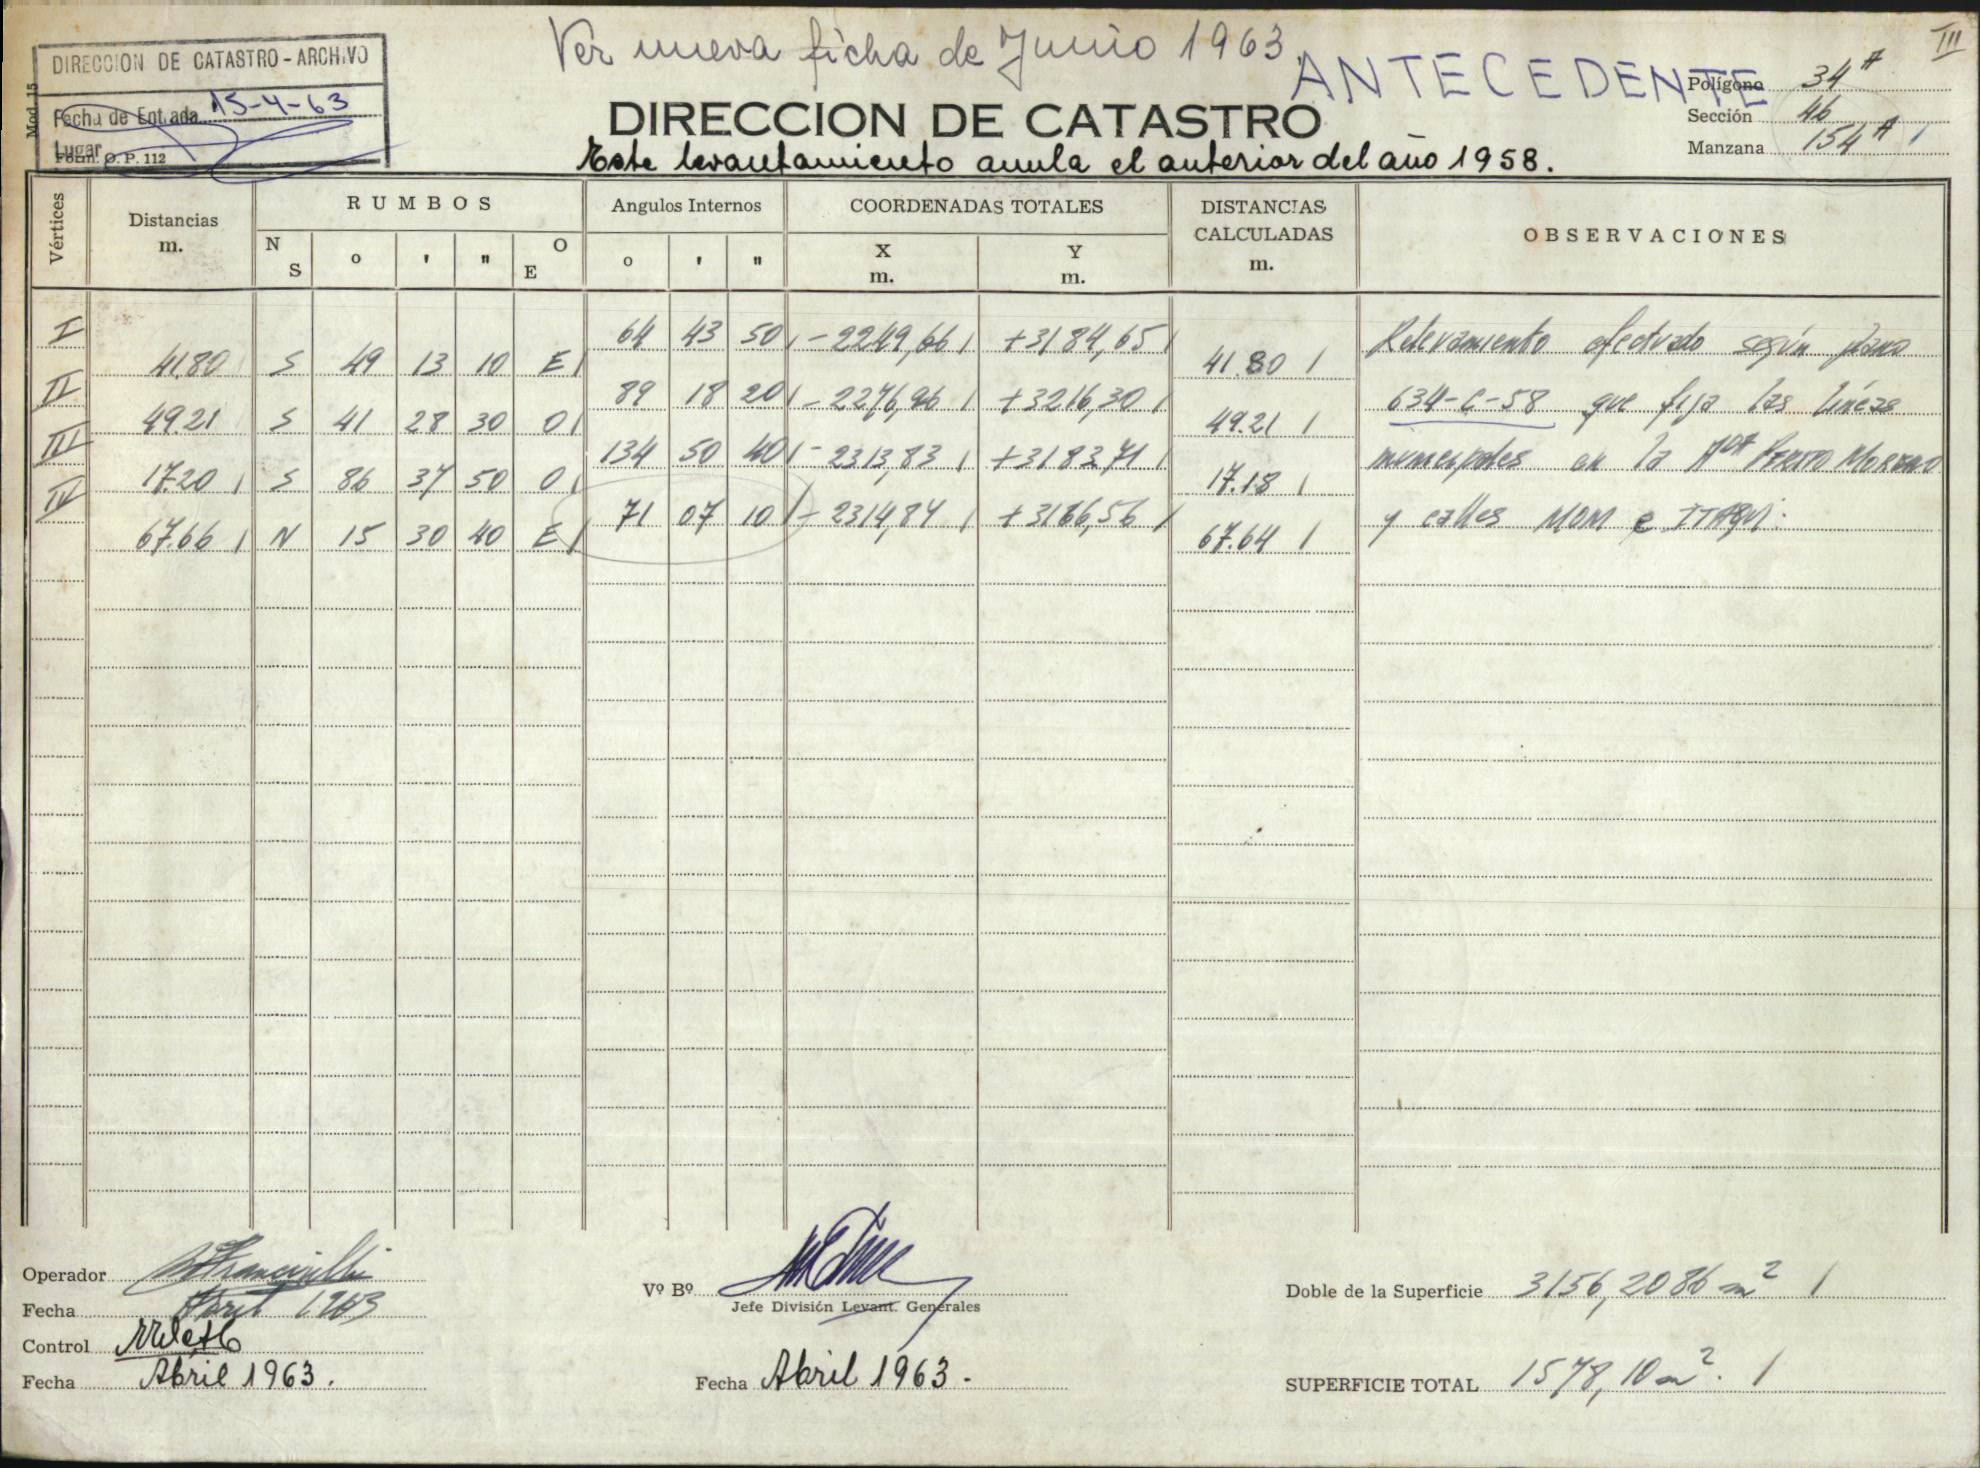 Ver nueva ficha de Junio 1963
III
DIRECCION DE CATASTRO - ARCHIVO
Fecha de Entrada 15-4-63
Lugar
Mod. 15
Form. O. P. 112
ANTECEDENTE
DIRECCION DE CATASTRO
Este levantamiento anula el anterior del año 1958.
Polígono 34 A
Sección 46
Manzana 154 A /
Vértices
Distancias m.
RUMBOS
N S o ' " O E
Angulos Internos
o ' "
COORDENADAS TOTALES
X m. Y m.
DISTANCIAS CALCULADAS m.
OBSERVACIONES
I 64 43 50 / -2249,66 / +3184,65 / Relevamiento efectuado según plano
41.80 S 49 13 10 E / 41.80 /
II 89 18 20 / -2276,96 / +3216,30 / 634-C-58 que fija las líneas
49.21 S 41 28 30 O / 49.21 /
III 134 50 40 / -2313,83 / +3183,71 / municipales en la Avda PERITO MORENO
17.20 / S 86 37 50 O / 17.18 /
IV 71 07 10 / -2314,84 / +3166,56 / y calles MOM e ITAQUI.
67.66 / N 15 30 40 E / 67.64 /
Operador
Fecha Abril 1963
Control
Fecha Abril 1963.
Vº Bº
Jefe División Levant. Generales
Fecha Abril 1963.
Doble de la Superficie 3156,2086 m² /
SUPERFICIE TOTAL 1578,10 m². /